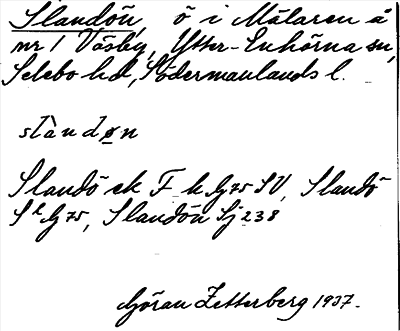 Slandön, ö i Mälaren å
nr 1 Väsby, Ytter-Enhörna sn,
Selebo hd, Södermanlands l.
slàndøn
Slandö ek F k G75 SV, Slandö
S k G75, Slandön Sj 238
Göran Zetterberg 1937.